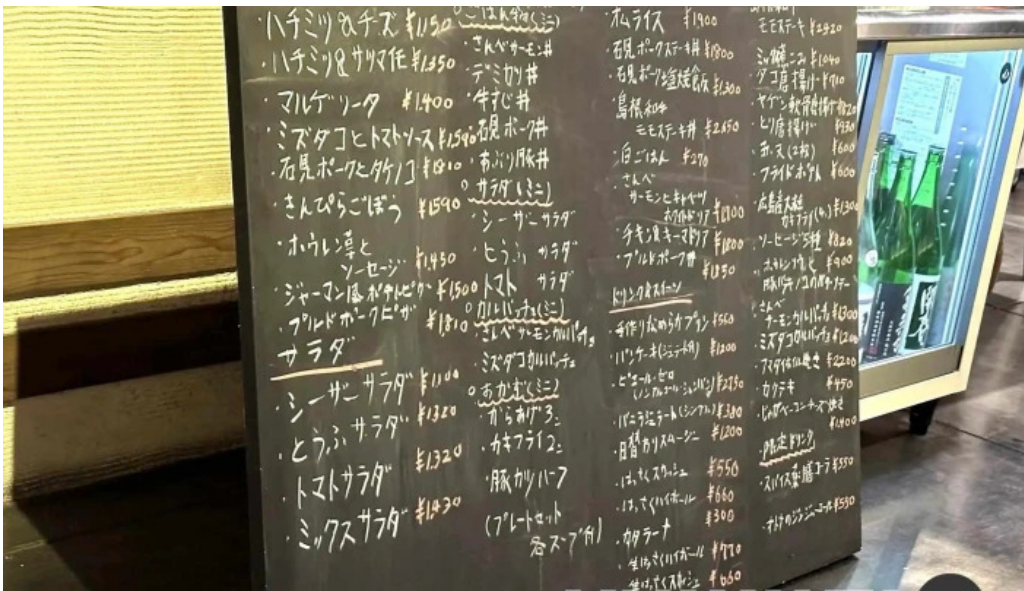 ハチミツ&チーズ ¥1,150
・ハチミツ&サツマイモ ¥1,350
・マルゲリータ ¥1,400
・ミズダコとトマトソース ¥1,590
・石見ポークとタケノコ ¥1810
・きんぴらごぼう ¥1590
・ホウレン草と
ソーセージ ¥1,450
・ジャーマン風ポテトピザ ¥1,500
・プルドポークピザ ¥1,810
サラダ
・シーザーサラダ ¥1,100
・とうふサラダ ¥1,320
・トマトサラダ ¥1,320
・ミックスサラダ ¥1,430
○ごはん物(ミニ)
・さんべサーモン丼
・デミカツ丼
・牛すじ丼
・石見ポーク丼
・あぶり豚丼
○サラダ(ミニ)
・シーザーサラダ
・とうふ サラダ
・トマト サラダ
○カルパッチョ(ミニ)
・さんべサーモンカルパッチョ
・ミズダコカルパッチョ
○おかず(ミニ)
・からあげ3コ
・カキフライ2コ
・豚カツハーフ
(プレートセット
各スープ付)
オムライス ¥1900
・石見ポークステーキ丼 ¥1800
・石見ポーク ¥1,300
・島根和牛
モモステーキ丼 ¥2650
・白ごはん ¥270
・さんべ
サーモンとキャベツ
ホワイトドリア ¥1800
・チキン&キーマドリア ¥1800
・プルドポーク丼 ¥1350
ドリンク&スイーツ
・手作りなめらかプリン ¥560
・パンケーキ ¥1200
・ピエール・ゼロ
(ノンアルコールシャンパン) ¥2750
・バニラジェラート(シングル) ¥380
・日替わりスムージー ¥1,200
・はっさくスカッシュ ¥550
・はっさくハイボール ¥660
・カタラーナ ¥300
・生はっさくハイボール ¥770
・生はっさくスカッシュ ¥660
モモステーキ ¥2420
¥1040
・タコ唐揚げ ¥710
・ヤゲン軟骨唐揚げ ¥820
・とり唐揚げ ¥930
¥600
・フライドポテト ¥600
・広島産大粒
カキフライ ¥1,300
・ソーセージ5種 ¥820
・ホウレン草と ¥900
・さんべ
サーモンカルパッチョ ¥1300
・ミズダコカルパッチョ ¥1200
¥2200
・カクテキ ¥450
¥1,400
・限定ドリンク
・スパイス薬膳コーラ ¥550
・オトナのジンジャーエール ¥550